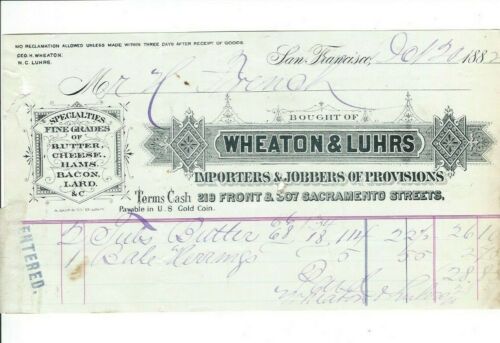 NO RECLAMATION ALLOWED UNLESS MADE WITHIN THREE DAYS AFTER RECEIPT OF GOODS.
GEO. H. WHEATON.
N. C. LUHRS.
San Francisco, Oct 20 1882
Mr H French
BOUGHT OF
WHEATON & LUHRS
IMPORTERS & JOBBERS OF PROVISIONS
219 FRONT & 307 SACRAMENTO STREETS,
SPECIALTIES
FINE GRADES
OF
BUTTER,
CHEESE,
HAMS,
BACON,
LARD,
&C
Terms Cash
Payable in U.S. Gold Coin.
ENTERED.
2 Tubs Butter 66 68 18
1 Bale Herrings 5 55
Paid
Wheaton & Luhrs